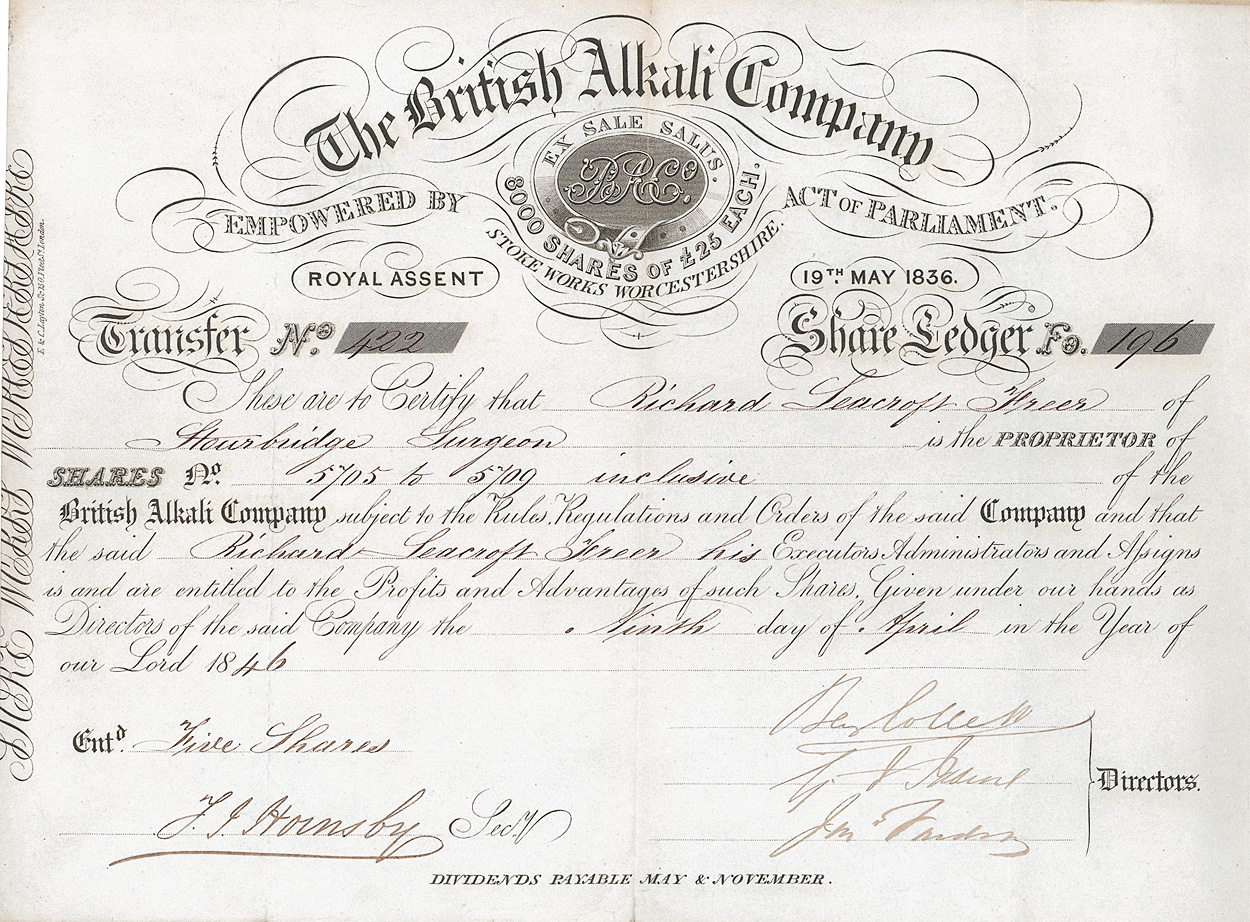 The British Alkali Company
EX SALE SALUS.
BACo.
8000 SHARES OF £25 EACH.
STOKE WORKS WORCESTERSHIRE.
EMPOWERED BY ACT OF PARLIAMENT.
ROYAL ASSENT 19TH MAY 1836.
E. & C. Layton Sc. 150 Fleet St. London.
Transfer No. 422 Share Ledger Fo. 196
These are to Certify that Richard Seacroft Freer of
Stourbridge Surgeon is the PROPRIETOR of
SHARES No. 5705 to 5709 inclusive of the
British Alkali Company subject to the Rules, Regulations and Orders of the said Company and that
the said Richard Seacroft Freer his Executors Administrators and Assigns
is and are entitled to the Profits and Advantages of such Shares, Given under our hands as
Directors of the said Company the Ninth day of April in the Year of
our Lord 1846
Entd. Five Shares
F. J. Hornsby Secy.
Directors.
DIVIDENDS PAYABLE MAY & NOVEMBER.